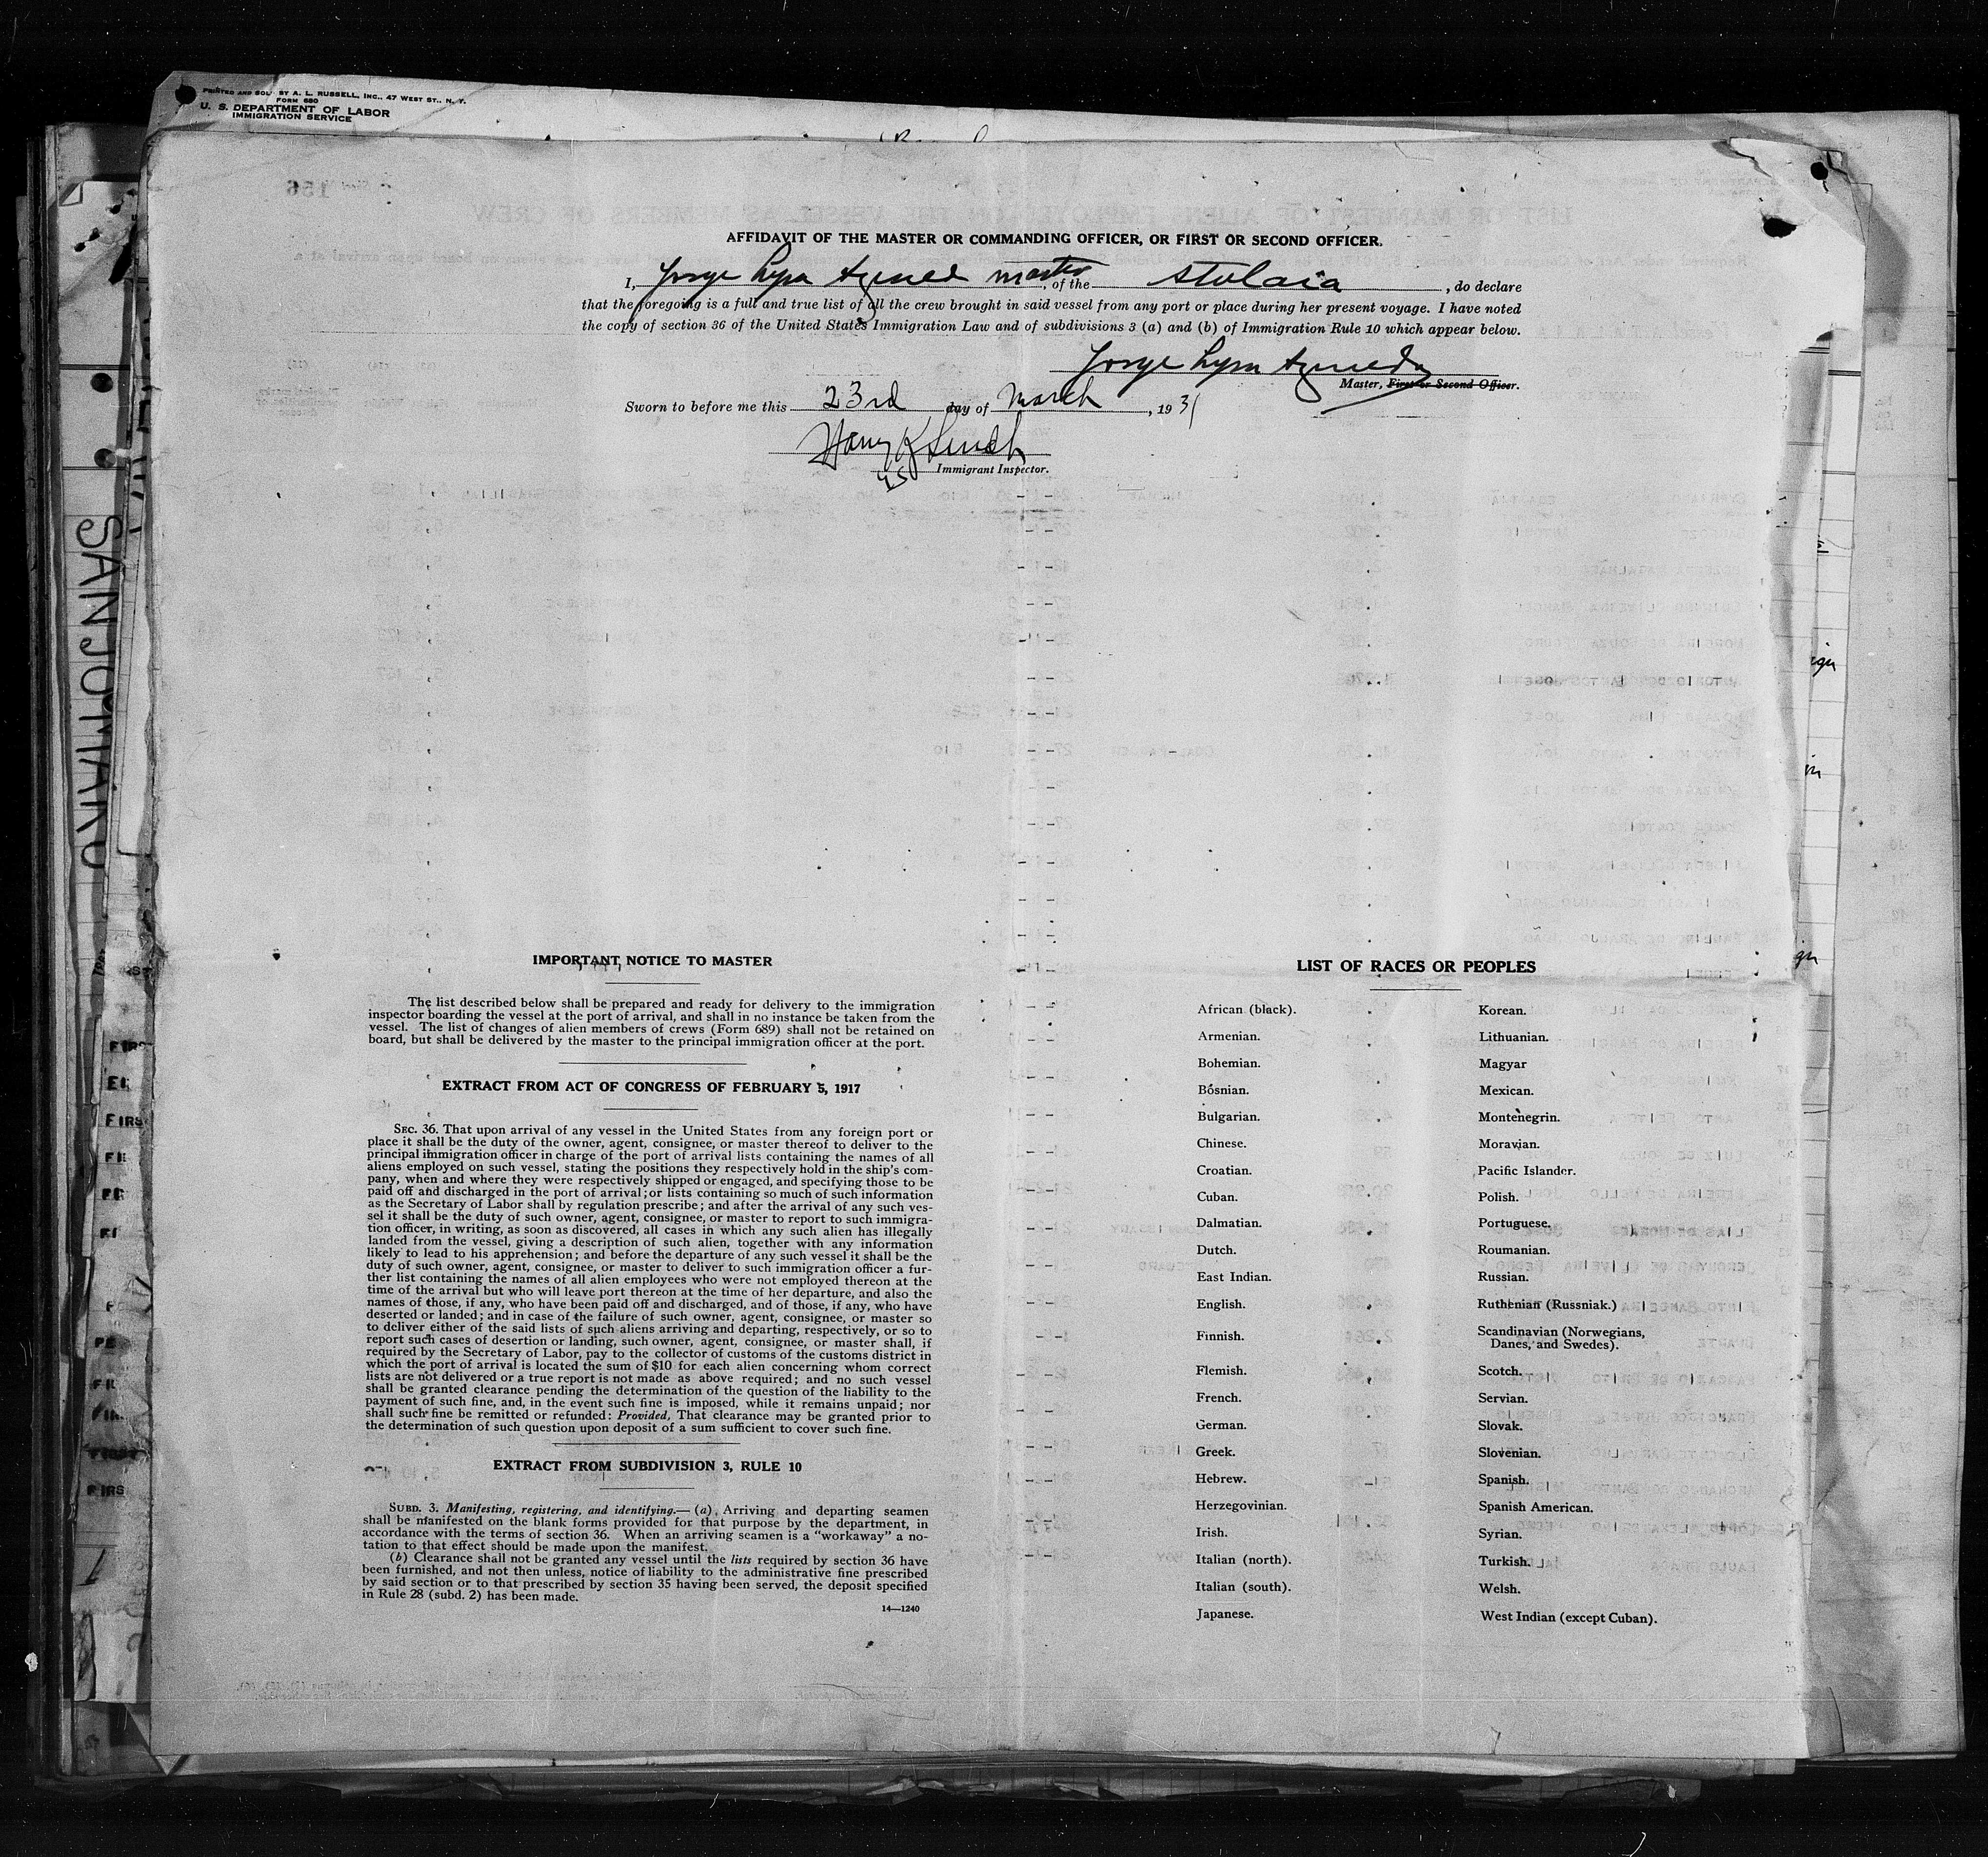 PRINTED AND SOLD BY A. L. RUSSELL, INC., 47 WEST ST., N. Y.
FORM 680
U. S. DEPARTMENT OF LABOR
IMMIGRATION SERVICE
156
LIST OR MANIFEST OF ALIENS EMPLOYED ON THE VESSEL AS MEMBERS OF CREW
AFFIDAVIT OF THE MASTER OR COMMANDING OFFICER, OR FIRST OR SECOND OFFICER.
I, Jorge master, of the , do declare
that the foregoing is a full and true list of all the crew brought in said vessel from any port or place during her present voyage. I have noted
the copy of section 36 of the United States Immigration Law and of subdivisions 3 (a) and (b) of Immigration Rule 10 which appear below.
Jorge
Master, First or Second Officer.
Sworn to before me this 23rd day of March, 1931
Harry K
Immigrant Inspector.
SANJOMARU
IMPORTANT NOTICE TO MASTER
The list described below shall be prepared and ready for delivery to the immigration
inspector boarding the vessel at the port of arrival, and shall in no instance be taken from the
vessel. The list of changes of alien members of crews (Form 689) shall not be retained on
board, but shall be delivered by the master to the principal immigration officer at the port.
EXTRACT FROM ACT OF CONGRESS OF FEBRUARY 5, 1917
SEC. 36. That upon arrival of any vessel in the United States from any foreign port or
place it shall be the duty of the owner, agent, consignee, or master thereof to deliver to the
principal immigration officer in charge of the port of arrival lists containing the names of all
aliens employed on such vessel, stating the positions they respectively hold in the ship's com-
pany, when and where they were respectively shipped or engaged, and specifying those to be
paid off and discharged in the port of arrival; or lists containing so much of such information
as the Secretary of Labor shall by regulation prescribe; and after the arrival of any such ves-
sel it shall be the duty of such owner, agent, consignee, or master to report to such immigra-
tion officer, in writing, as soon as discovered, all cases in which any such alien has illegally
landed from the vessel, giving a description of such alien, together with any information
likely to lead to his apprehension; and before the departure of any such vessel it shall be the
duty of such owner, agent, consignee, or master to deliver to such immigration officer a fur-
ther list containing the names of all alien employees who were not employed thereon at the
time of the arrival but who will leave port thereon at the time of her departure, and also the
names of those, if any, who have been paid off and discharged, and of those, if any, who have
deserted or landed; and in case of the failure of such owner, agent, consignee, or master so
to deliver either of the said lists of such aliens arriving and departing, respectively, or so to
report such cases of desertion or landing, such owner, agent, consignee, or master shall, if
required by the Secretary of Labor, pay to the collector of customs of the customs district in
which the port of arrival is located the sum of $10 for each alien concerning whom correct
lists are not delivered or a true report is not made as above required; and no such vessel
shall be granted clearance pending the determination of the question of the liability to the
payment of such fine, and, in the event such fine is imposed, while it remains unpaid; nor
shall such fine be remitted or refunded: Provided, That clearance may be granted prior to
the determination of such question upon deposit of a sum sufficient to cover such fine.
EXTRACT FROM SUBDIVISION 3, RULE 10
SUBD. 3. Manifesting, registering, and identifying.—(a), Arriving and departing seamen
shall be manifested on the blank forms provided for that purpose by the department, in
accordance with the terms of section 36. When an arriving seamen is a "workaway" a no-
tation to that effect should be made upon the manifest.
(b) Clearance shall not be granted any vessel until the lists required by section 36 have
been furnished, and not then unless, notice of liability to the administrative fine prescribed
by said section or to that prescribed by section 35 having been served, the deposit specified
in Rule 28 (subd. 2) has been made.
14—1240
LIST OF RACES OR PEOPLES
African (black).
Armenian.
Bohemian.
Bosnian.
Bulgarian.
Chinese.
Croatian.
Cuban.
Dalmatian.
Dutch.
East Indian.
English.
Finnish.
Flemish.
French.
German.
Greek.
Hebrew.
Herzegovinian.
Irish.
Italian (north).
Italian (south).
Japanese.
Korean.
Lithuanian.
Magyar
Mexican.
Montenegrin.
Moravian.
Pacific Islander.
Polish.
Portuguese.
Roumanian.
Russian.
Ruthenian (Russniak.)
Scandinavian (Norwegians,
Danes, and Swedes).
Scotch.
Servian.
Slovak.
Slovenian.
Spanish.
Spanish American.
Syrian.
Turkish.
Welsh.
West Indian (except Cuban).